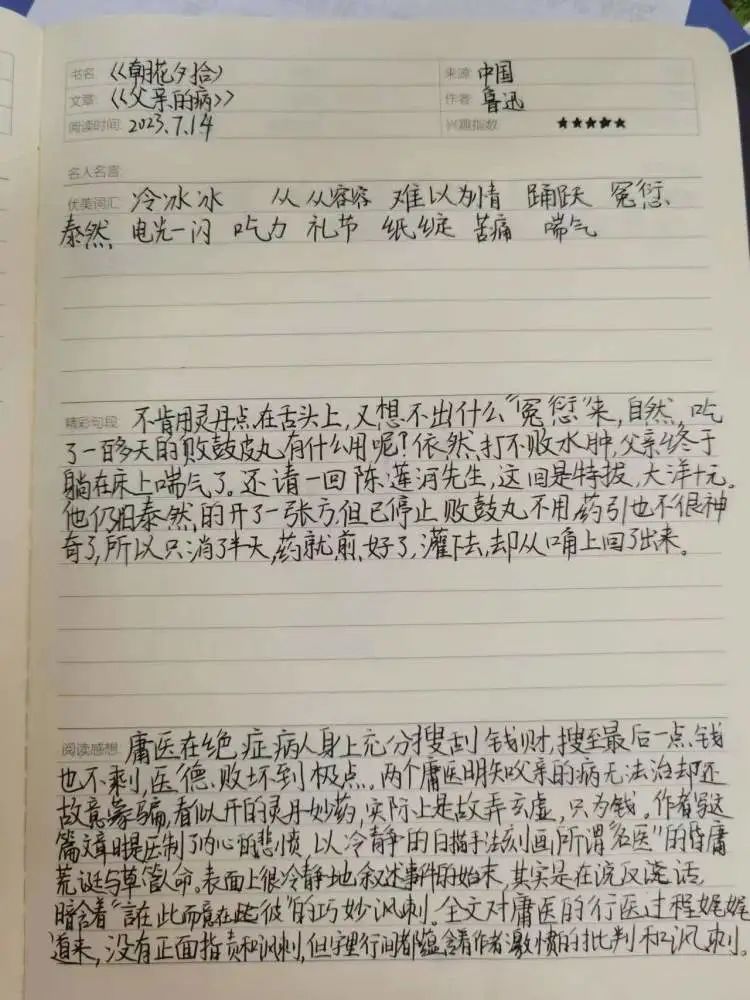 书名: 《朝花夕拾》 来源: 中国
文章: 《父亲的病》 作者: 鲁迅
阅读时间: 2023.7.14 兴趣指数: ★★★★★
名人名言:
优美词汇: 冷冰冰 从从容容 难以为情 踊跃 冤愆、
泰然 电光一闪 吃力 礼节 纸锭 苦痛 喘气
精彩句段: 不肯用灵丹点在舌头上,又想不出什么“冤愆”来,自然,吃
了一百多天的败鼓皮丸有什么用呢?依然打不败水肿,父亲终于
躺在床上喘气了。还请一回陈莲河先生,这回是特拔,大洋十元。
他仍旧泰然的开了一张方,但已停止败鼓丸不用,药引也不很神
奇了,所以只消了半天,药就煎好了,灌下去,却从口角上回了出来。
阅读感想: 庸医在绝症病人身上充分搜刮钱财,搜至最后一点钱
也不剩,医德败坏到极点。两个庸医明知父亲的病无法治却还
故意蒙骗,看似开的灵丹妙药,实际上是故弄玄虚,只为钱。作者写这
篇文章时是压制了内心的悲愤,以冷静的白描手法刻画所谓“名医”的昏庸
荒诞与草菅人命。表面上很冷静地叙述事件的始末,其实是在说反话,
暗含着“言在此而意在彼”的巧妙讽刺。全文对庸医的行医过程娓娓
道来,没有正面指责和讽刺,但字里行间都蕴含着作者激愤的批判和讽刺。